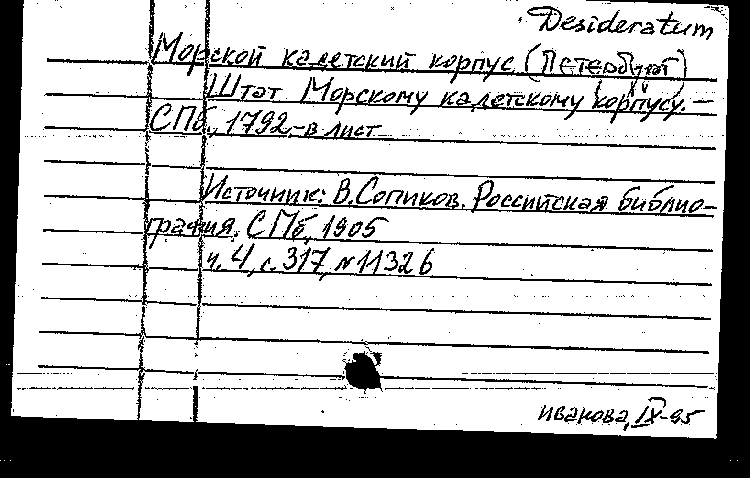 Desideratum
Морской кадетский корпус (Петербург)
Штат Морскому кадетскому корпусу. –
СПб, 1792.-в лист
Источник: В.Сопиков. Российская библио-
графия, СПб, 1905
ч. 4, с. 317, №11326
Иванова, IX-95